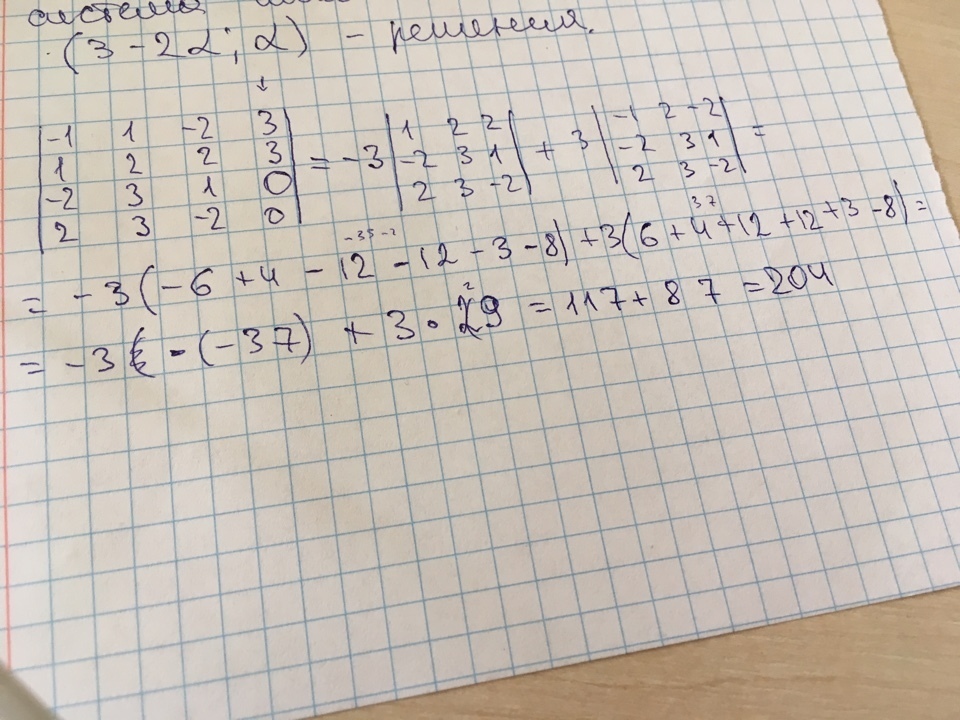 система
(3 - 2α; α) - решения.
↓
|-1 1 -2 3|
|1 2 2 3|
|-2 3 1 0|
|2 3 -2 0|
= -3 |1 2 2|
|-2 3 1|
|2 3 -2|
+ 3 |-1 2 -2|
|-2 3 1|
|2 3 -2| =
= -3(-6 + 4 - 12 - 12 - 3 - 8) + 3(6 + 4 + 12 + 12 + 3 - 8) =
37
= -3 · (-37) + 3 · 29 = 117 + 87 = 204